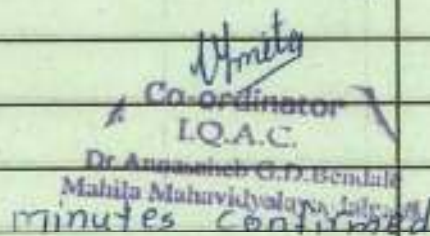 Co-ordinator
I.Q.A.C.
Dr. Annasaheb G.D. Bendale
Mahila Mahavidyalaya, Jalgaon
minutes confirmed